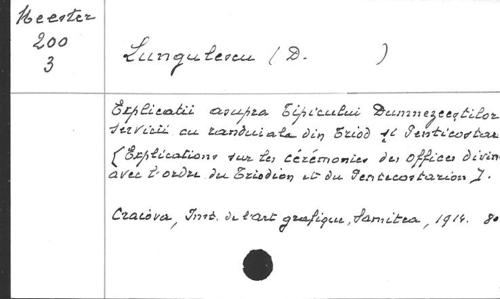 Meester
200
3
Lungulescu (D. )
Explicatii asupra Tipicului Dumnezeestilor
servicii cu randuiala din Triod si Penticostar
[Explications sur les cérémonies des offices divin
avec l'ordre du Triodion et du Pentecostarion].
Craiova, Inst. de l'art grafique, Samitca, 1914. 80